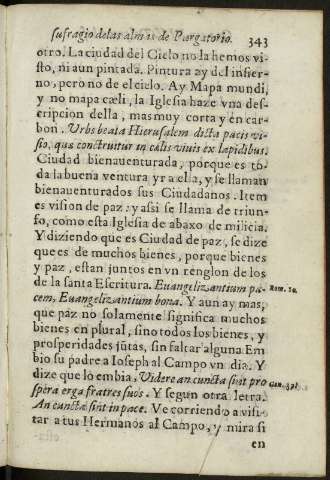 sufragio delas almas de Purgatorio. 343
otro. La ciudad del Cielo no la hemos vi-
sto, ni aun pintada. Pintura ay del infier-
no, pero nò de el cielo. Ay Mapa mundi,
y no mapa cæli, la Iglesia haze vna des-
cripcion della, mas muy corta y en car-
bon. Vrbs beata Hierusalem dicta pacis vi-
sio, quæ construitur in cælis viuis ex lapidibus.
Ciudad bienauenturada, porque es to-
da la buena ventura yr a ella, y se llaman
bienauenturados sus Ciudadanos. Item
es vision de paz: y assi se llama de triun-
fo, como esta Iglesia de abaxo de milicia.
Y diziendo que es Ciudad de paz, se dize
que es de muchos bienes, porque bienes
y paz, estan juntos en vn renglon de los
de la santa Escritura. Euangelizantium pa-
cem, Euangelizantium bona. Y aun ay mas, Rom. 10.
que paz no solamente significa muchos
bienes en plural, sino todos los bienes, y
prosperidades jũtas, sin faltar alguna. Em
bio su padre a Ioseph al Campo vn dia. Y
dize que lo embia, Videre an cuncta sint pro Gen. 37.
spera erga fratres suos. Y segun otra letra.
An cuncta sint in pace. Ve corriendo a visi-
tar a tus Hermanos al Campo, y mira si
en